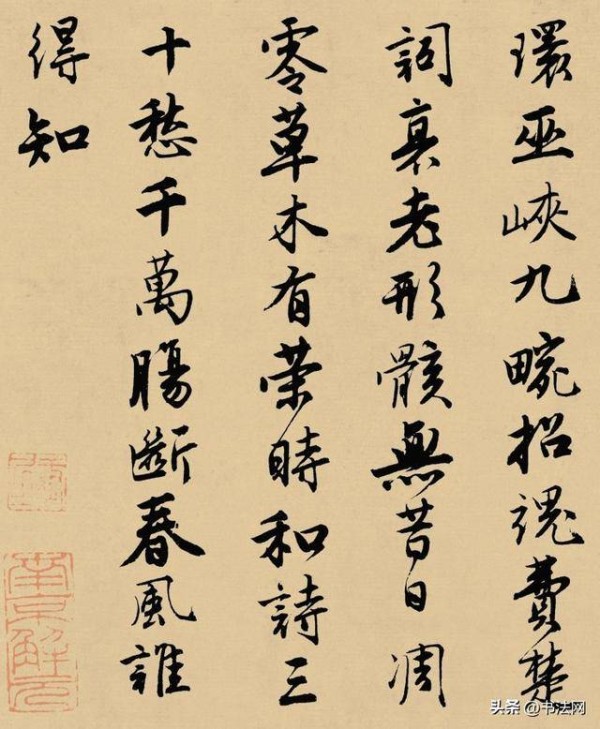 環巫峽九畹招魂費楚
詞衰老形骸無昔日凋
零草木有榮時和詩三
十愁千萬腸斷春風誰
得知
南京解元
头条 @书法网